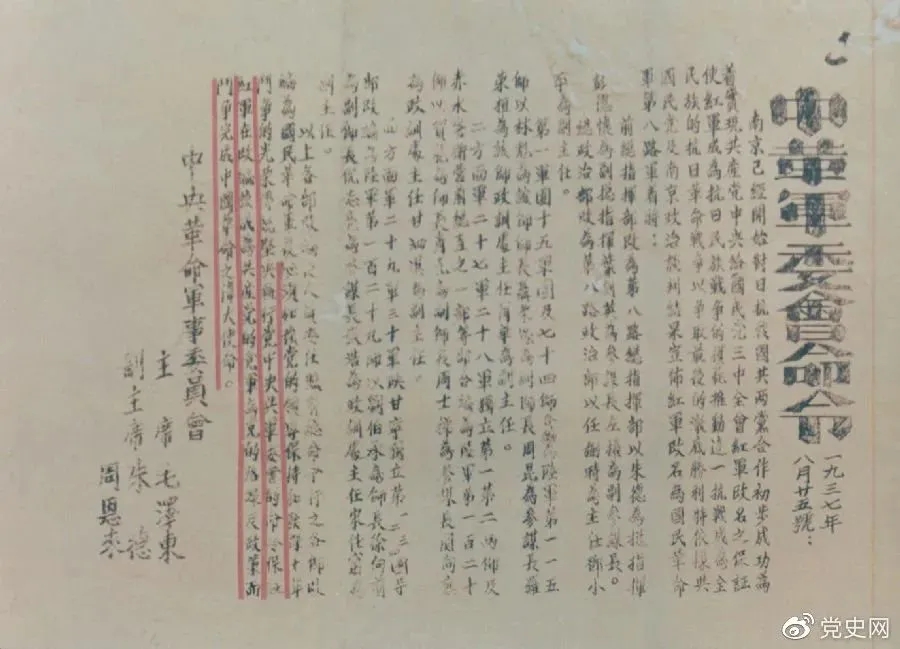 中革軍委會命令
一九三七年
八月廿五號：
南京已經開始對日抗戰國共兩黨合作初步成功為
着實現共產党中央給國民党三中全會紅軍改名之保証
使紅軍成為抗日民族戰争的模範推動這一抗戰成為全
民族的抗日革命戰争以争取最後的澈底勝利特依據與
國民党及南京政治談判結果宣佈紅軍改名為國民革命
軍第八路軍着將：
前總指揮部改為第八路總指揮部以朱德為總指揮
彭德懷為副總指揮葉劍英為參謀長左權為副參謀長。
總政治部改為第八路政治部以任弼時為主任鄧小
平為副主任。
第一軍團十五軍團及七十四師合編為陸軍第一一五
師以林彪為該師師長聶荣臻為副師長周昆為參謀長羅
荣桓為該師政訓處主任蕭華為副主任。
二方面軍二十七軍二十八軍獨立第一第二兩師及
赤水警衛營前總直之一部等部合編為陸軍第一百二十
師以賀龍為師長蕭克為副師長周士第為參謀長関向應
為政訓處主任甘泗淇為副主任。
四方面軍二十九軍三十軍陝甘寧獨立第一二三四等
部改編為陸軍第一百二十九師以劉伯承為師長徐向前
為副師長倪志亮為參謀長張浩為政訓處主任宋任窮為
副主任。
以上各部改編後人員委任照前總命令行之各部改
編為國民革命軍後必須加强党的領導保持和發揮十年
鬥争的光荣傳統堅決執行党中央與軍委會的命令保証
紅軍在改編後成為共產党的党軍為党的路線及政策而
鬥争完成中國革命之偉大使命。
中央革命軍事委員會
主席毛澤東
副主席朱德
周恩來
党史网